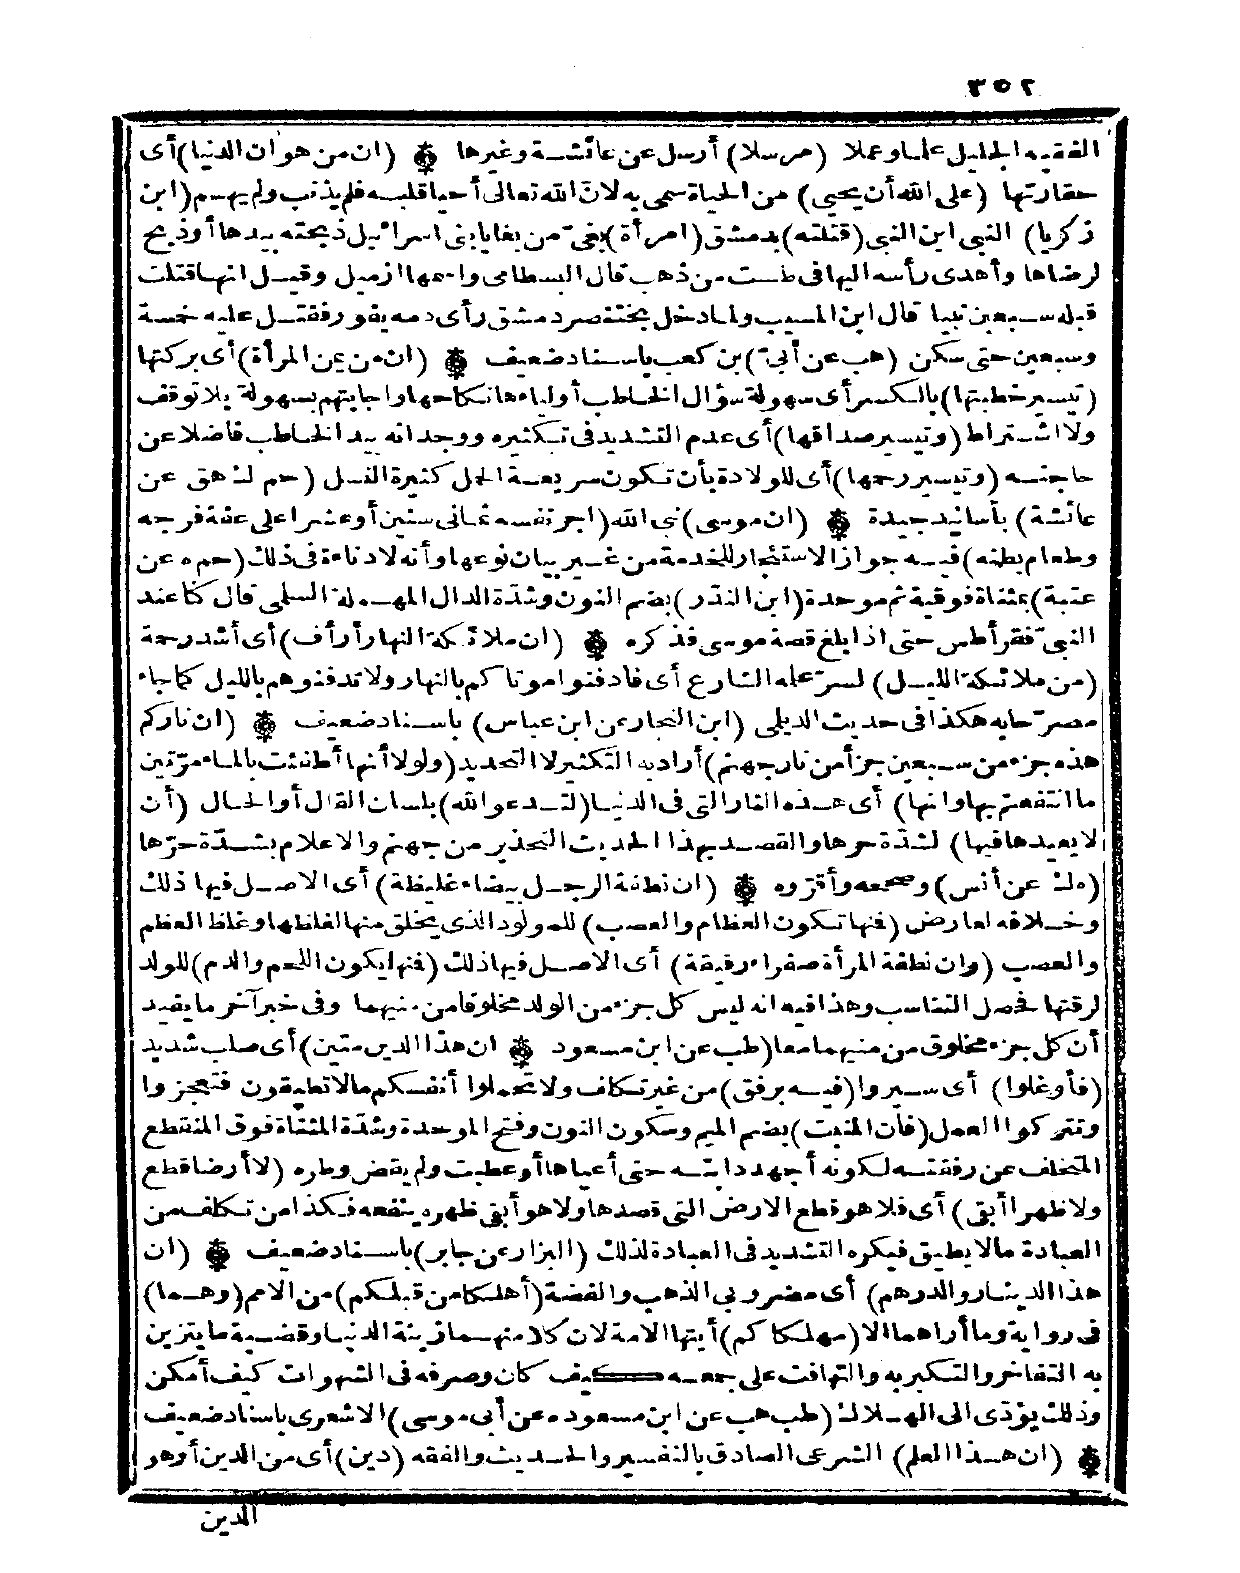 ٣٥٢
الفقيه الجليل علما وعملا (مرسلا) أرسل عن عائشة وغيرها ۞ (ان من هوان الدنيا) أى
حقارتها (على الله أن يحيى) من الحياة سمى به لان الله تعالى أحيا قلبه فلم يذنب ولم يهم (ابن
زكريا) النبي ابن النبي (قتلته) بدمشق (امرأة) بغىّ من بغايا بنى اسرائيل ذبحته بيدها أو ذبح
لرضاها وأهدى رأسه اليها فى طست من ذهب قال البسطامى واسمها ازميل وقيل انها قتلت
قبله سبعين نبيا قال ابن المسيب ولما دخل بختنصر دمشق رأى دمه يفور فقتل عليه خمسة
وسبعين حتى سكن (هب عن أبىّ) بن كعب باسناد ضعيف ۞ (ان من يمن المرأة) أى بركتها
(تيسير خطبتها) بالكسر أى سهولة سؤال الخاطب أولياءها نكاحها واجابتهم بسهولة بلا توقف
ولا اشتراط (وتيسير صداقها) أى عدم التشديد فى تكثيره ووجدانه بيد الخاطب فاضلا عن
حاجته (وتيسير رحمها) أى للولادة بأن تكون سريعة الحمل كثيرة النسل (حم ك هق عن
عائشة) بأسانيد جيدة ۞ (ان موسى) نبى الله (اجر نفسه ثمانى سنين أو عشرا على عفة فرجه
وطعام بطنه) فيه جواز الاستئجار للخدمة من غير بيان نوعها وأنه لا دناءة فى ذلك (حم ه عن
عتبة) بمثناة فوقية ثم موحدة (ابن الندر) بضم النون وشدّة الدال المهملة السلمى قال كنا عند
النبىّ فقرأ طس حتى اذا بلغ قصة موسى فذكره ۞ (ان ملائكة النهار أرأف) أى أشد رحمة
(من ملائكة الليل) لسرّ علمه الشارع أى فادفنوا موتاكم بالنهار ولا تدفنوهم بالليل كما جاء
مصرّحا به هكذا فى حديث الديلمى (ابن النجار عن ابن عباس) باسناد ضعيف ۞ (ان ناركم
هذه جزء من سبعين جزأ من نار جهنم) أراد به التكثير لا التحديد (ولولا أنها أطفئت بالماء مرّتين
ما انتفعتم بها وانها) أى هذه النار التى فى الدنيا (لتدعو الله) بلسان القال أو الحال (أن
لا يعيدها فيها) لشدّة حرها والقصد بهذا الحديث التحذير من جهنم والاعلام بشدّة حرّها
(ه ك عن أنس) وصححه وأقرّوه ۞ (ان نطفة الرجل بيضاء غليظة) أى الاصل فيها ذلك
وخلافه لعارض (فنها تكون العظام والعصب) للمولود الذى يخلق منها لغلظها وغلظ العظم
والعصب (وان نطفة المرأة صفراء رقيقة) أى الاصل فيها ذلك (فنها يكون اللحم والدم) للولد
لرقتها فحصل التناسب وهذا فيه انه ليس كل جزء من الولد مخلوقا من منيهما وفى خبر آخر ما يفيد
أن كل جزء مخلوق من منيهما معا (طب عن ابن مسعود ۞ ان هذا الدين متين) أى صلب شديد
(فأوغلوا) أى سيروا (فيه برفق) من غير تكلف ولا تحملوا أنفسكم مالا تطيقون فتعجزوا
وتتركوا العمل (فان المنبت) بضم الميم وسكون النون وفتح الموحدة وشدّة المثناة فوق المنقطع
المتخلف عن رفقته لكونه أجهد دابته حتى أعياها أو عطبت ولم يقض وطره (لا أرضا قطع
ولا ظهرا أبقى) أى فلا هو قطع الارض التى قصدها ولا هو أبقى ظهره ينفعه فكذا من تكلف من
العبادة مالا يطيق فيكره التشديد فى العبادة لذلك (البزار عن جابر) باسناد ضعيف ۞ (ان
هذا الدينار والدرهم) أى مضروبى الذهب والفضة (أهلكا من قبلكم) من الامم (وهما)
فى رواية وما أراهما الا (مهلكاكم) أيتها الامة لان كلا منهما زينة الدنيا وقضية ما يتزين
به التفاخر والتكبر به والتهافت على جمعه كيف كان وصرفه فى الشهوات كيف أمكن
وذلك يؤدّى الى الهلاك (طب هب عن ابن مسعود ه عن أبى موسى) الاشعرى باسناد ضعيف
۞ (ان هذا العلم) الشرعى الصادق بالتفسير والحديث والفقه (دين) أى من الدين أو هو
الدين